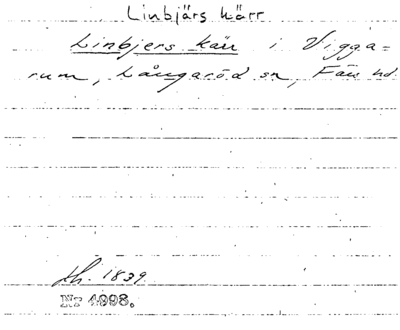 Linbjärs kärr
Linbjers kärr i Vigga=
rum, Långaröd sn, Färs hd.
Lh. 1839.
Nr 1998.